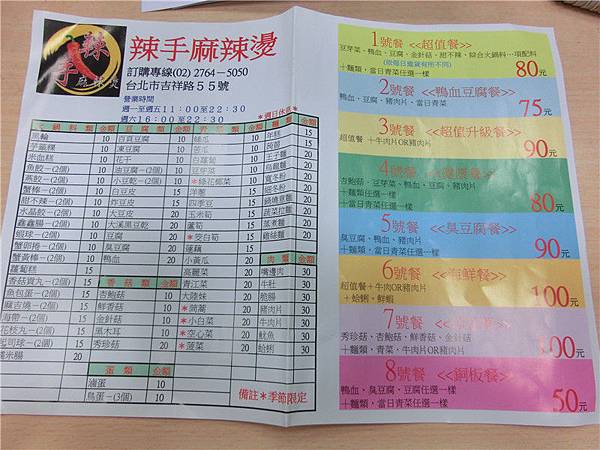 辣手麻辣燙
訂購專線(02) 2764－5050
台北市吉祥路５５號
營業時間
週一至週五11：00至22：30
週六16：00至22：30
*週日休息*
火鍋料類 金額 豆腐類 金額 青菜類 金額 麵類 金額
黑輪 10 百頁豆腐 10 絲瓜 10 年糕 15
芋籤粿 10 凍豆腐 10 苦瓜 10
米血糕 10 花干 10 白蘿蔔 10 王子麵
魚餃－(2個) 10 油豆腐－(2個) 10 烏龍麵
燕餃－(2個) 10 小豆腐－(2個) 10 *綠花椰菜 寬冬粉
蟹棒－(2個) 10 白豆皮 細冬粉
甜不辣－(2個) 炸豆皮 四季豆 鍋燒意麵
水晶餃－(2個) 大豆皮 20 玉米筍 蔬菜拉麵
鑫鑫腸－(2個) 大溪黑豆乾 20 蘆筍 蒸煮麵
蝦球－(2個) 豆腐 *茭白筍 雞絲麵
蟹卵捲－(2個) 臭豆腐 蓮藕
蟹黃棒－(2個) 鴨血 小黃瓜 肉類 金額
蘿蔔糕 15 高麗菜 嘴邊肉 30
香菇貢丸－(2個) 香菇類 金額 青江菜 牛肚 30
魚包蛋－(2個) 杏鮑菇 10 大陸妹 脆腸 30
麻吉燒－(2個) 鮮香菇 10 *茼蒿 牛肉片 30
海帶－(2個) 金針菇 10 *小白菜 豬肉片 30
花枝丸－(2個) 黑木耳 10 *空心菜 魷魚 30
起司球－(2個) 秀珍菇 20 *菠菜 20 蛤蜊 30
糯米腸 20
蛋類 金額
滷蛋 10
鳥蛋－(3個) 10
備註*季節限定
1號餐 <<超值餐>>
豆芽菜、鴨血、豆腐、金針菇、甜不辣、綜合火鍋料…項配料
(依每日進貨有所不同)
＋麵類，當日青菜任選一樣 80元
2號餐 <<鴨血豆腐餐>>
鴨血、豆腐、豬肉片 75元
3號餐 <<超值升級餐>>
超值餐 ＋牛肉片OR豬肉片 90元
4號餐
杏鮑菇、豆芽菜、鴨血、豆腐、豬肉片
＋麵類，當日青菜任選一樣 80元
5號餐 <<臭豆腐餐>>
臭豆腐、鴨血、豬肉片
＋麵類，當日青菜任選一樣 90元
6號餐 <<海鮮餐>>
超值餐＋牛肉OR豬肉片
＋蛤蜊、鮮蝦 100元
7號餐
秀珍菇、杏鮑菇、鮮香菇、金針菇
＋麵類，青菜，牛肉片OR豬肉片 100元
8號餐 <<銅板餐>>
鴨血、臭豆腐、豆腐
＋麵類，當日青菜任選一樣 50元